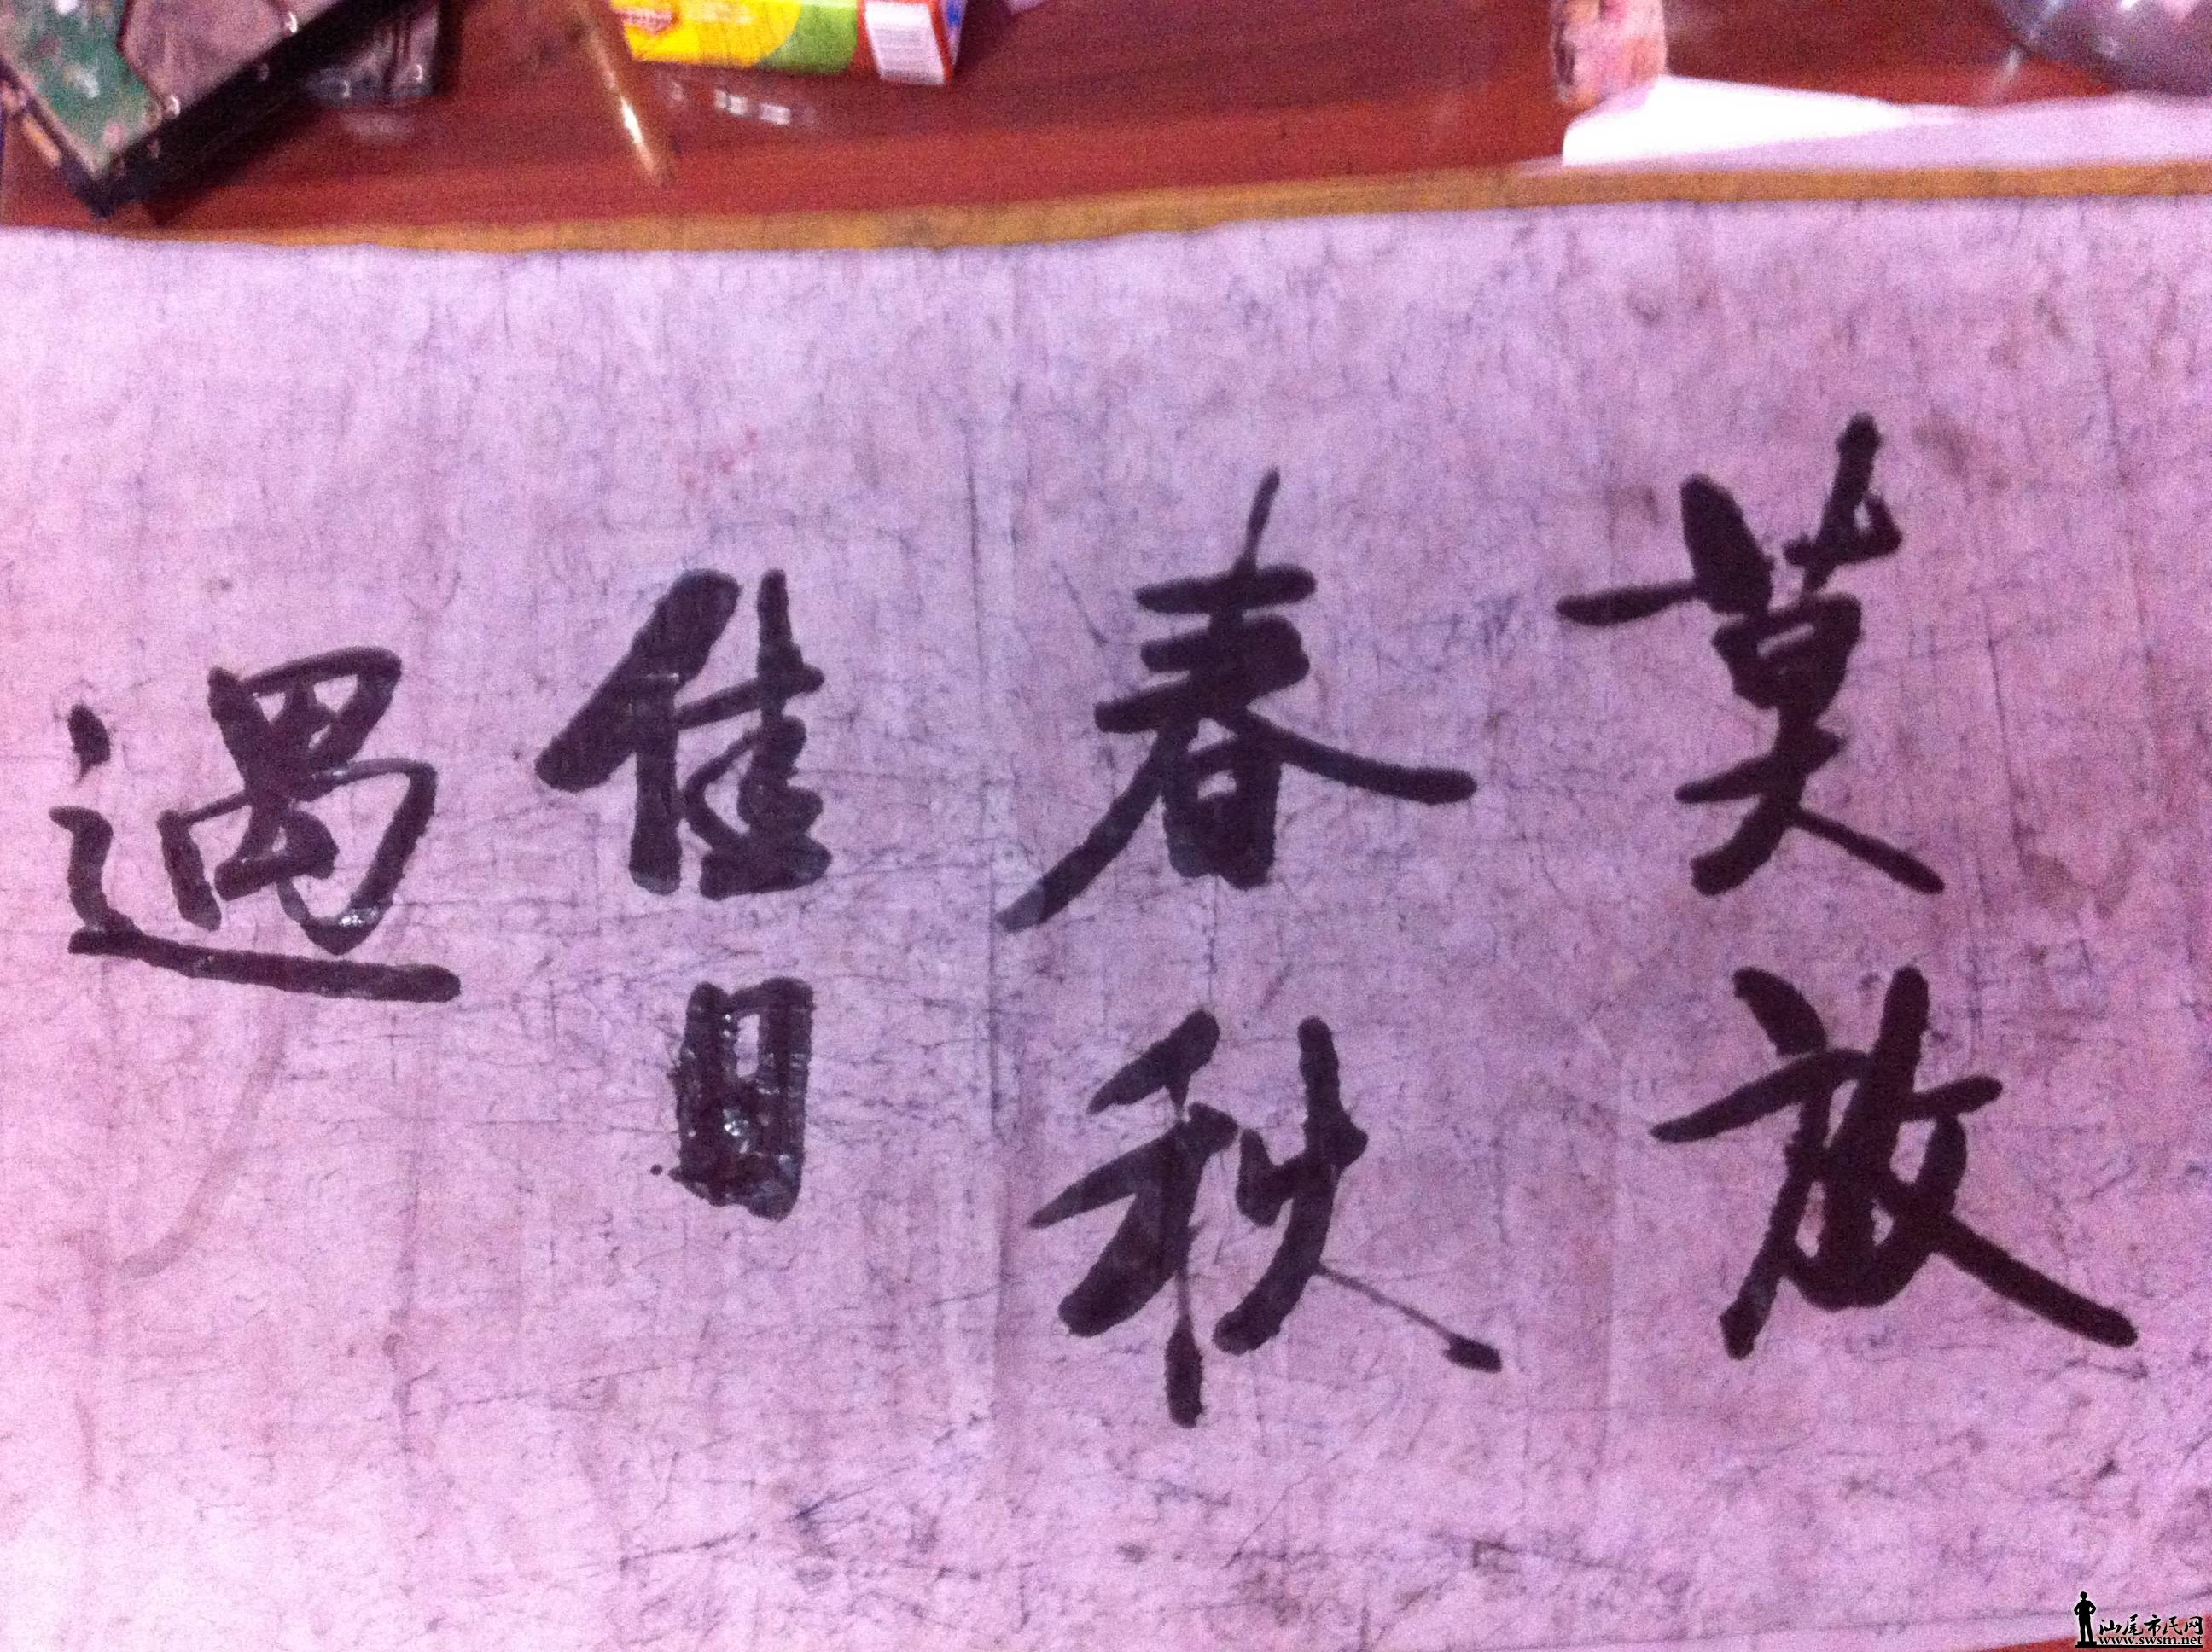 莫放
春秋
佳日
過
汕尾市民网
www.swsm.net